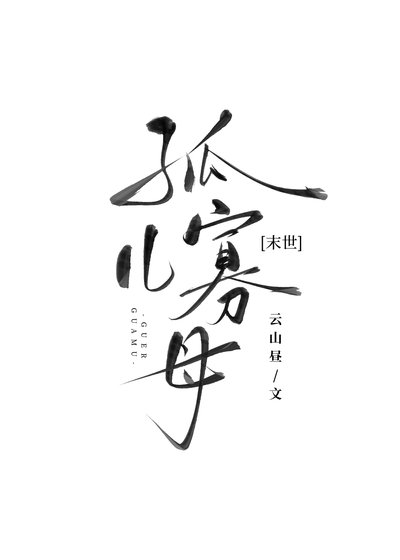 孤儿寡母
[末世]
·GUER
GUAMU·
云山昼/文